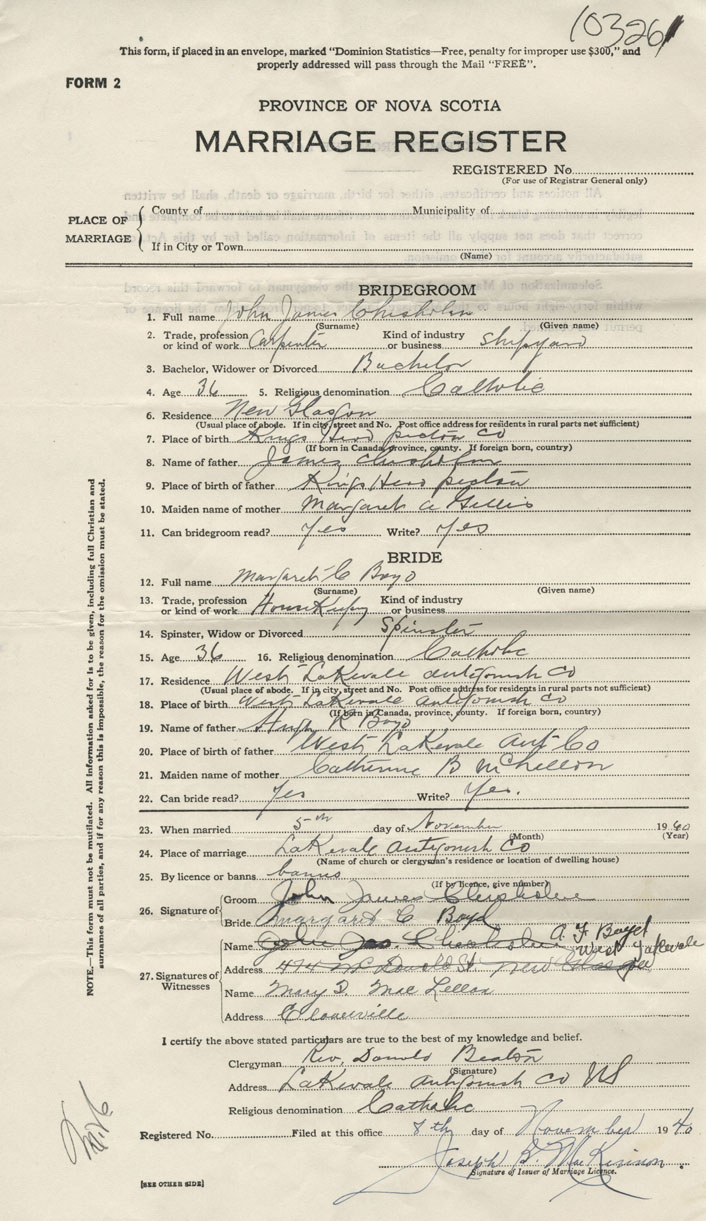 103261
This form, if placed in an envelope, marked "Dominion Statistics—Free, penalty for improper use $300," and
properly addressed will pass through the Mail "FREE".
FORM 2
PROVINCE OF NOVA SCOTIA
MARRIAGE REGISTER
REGISTERED No.
(For use of Registrar General only)
PLACE OF MARRIAGE
County of Municipality of
If in City or Town
(Name)
BRIDEGROOM
1. Full name John James Chisholm
(Surname) (Given name)
2. Trade, profession or kind of work Carpenter Kind of industry or business Shipyard
3. Bachelor, Widower or Divorced Bachelor
4. Age 36 5. Religious denomination Catholic
6. Residence New Glasgow
(Usual place of abode. If in city, street and No. Post office address for residents in rural parts not sufficient)
7. Place of birth Kings Head pictou Co
(If born in Canada, province, county. If foreign born, country)
8. Name of father James Chisholm
9. Place of birth of father Kings Head pictou
10. Maiden name of mother Margaret a Gillis
11. Can bridegroom read? Yes Write? Yes
BRIDE
12. Full name Margaret C Boyd
(Surname) (Given name)
13. Trade, profession or kind of work HouseKeeping Kind of industry or business
14. Spinster, Widow or Divorced Spinster
15. Age 36 16. Religious denomination Catholic
17. Residence West LaKevale antigonish Co
(Usual place of abode. If in city, street and No. Post office address for residents in rural parts not sufficient)
18. Place of birth West LaKevale antigonish Co
(If born in Canada, province, county. If foreign born, country)
19. Name of father Hugh R Boyd
20. Place of birth of father West LaKevale Ant Co
21. Maiden name of mother Catherine B
22. Can bride read? Yes Write? Yes.
23. When married 5th day of November 1940
(Month) (Year)
24. Place of marriage LaKevale Antigonish Co
(Name of church or clergyman's residence or location of dwelling house)
25. By licence or banns banns
(If by licence, give number)
26. Signature of
Groom John James Chisholm
Bride Margaret C Boyd
27. Signatures of Witnesses
Name John Jas. Chisholm A. F. Boyd
West Lakevale
Address 474 McDonald St New Glasgow
Name Mary D. MacLellan
Address Cloverville
I certify the above stated particulars are true to the best of my knowledge and belief.
Clergyman Rev. Donald Beaton
(Signature)
Address LaKevale antigonish Co NS
Religious denomination Catholic
Registered No. Filed at this office 8th day of November 1940
Joseph B. MacKinnon
Signature of Issuer of Marriage Licence.
[SEE OTHER SIDE]
NOTE.—This form must not be mutilated. All information asked for is to be given, including full Christian and
surnames of all parties, and if for any reason this is impossible, the reason for the omission must be stated.